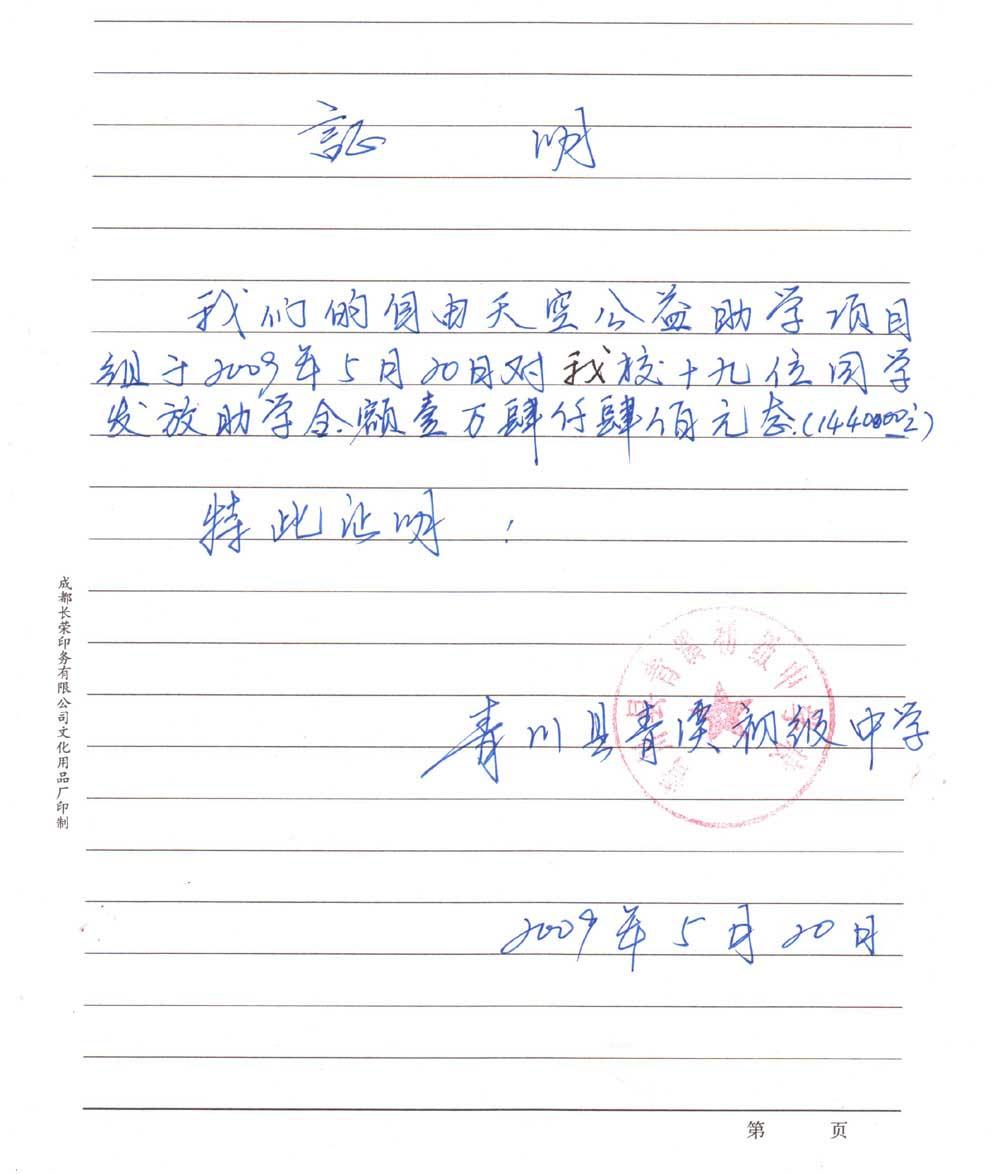 证 明
我们的自由天空公益助学项目
组于2009年5月20日对我校十九位同学
发放助学金额壹万肆仟肆佰元态.(14400.00元)
特此证明!
青川县青溪初级中学
2009年5月20日
成都长荣印务有限公司文化用品厂印制
第 页